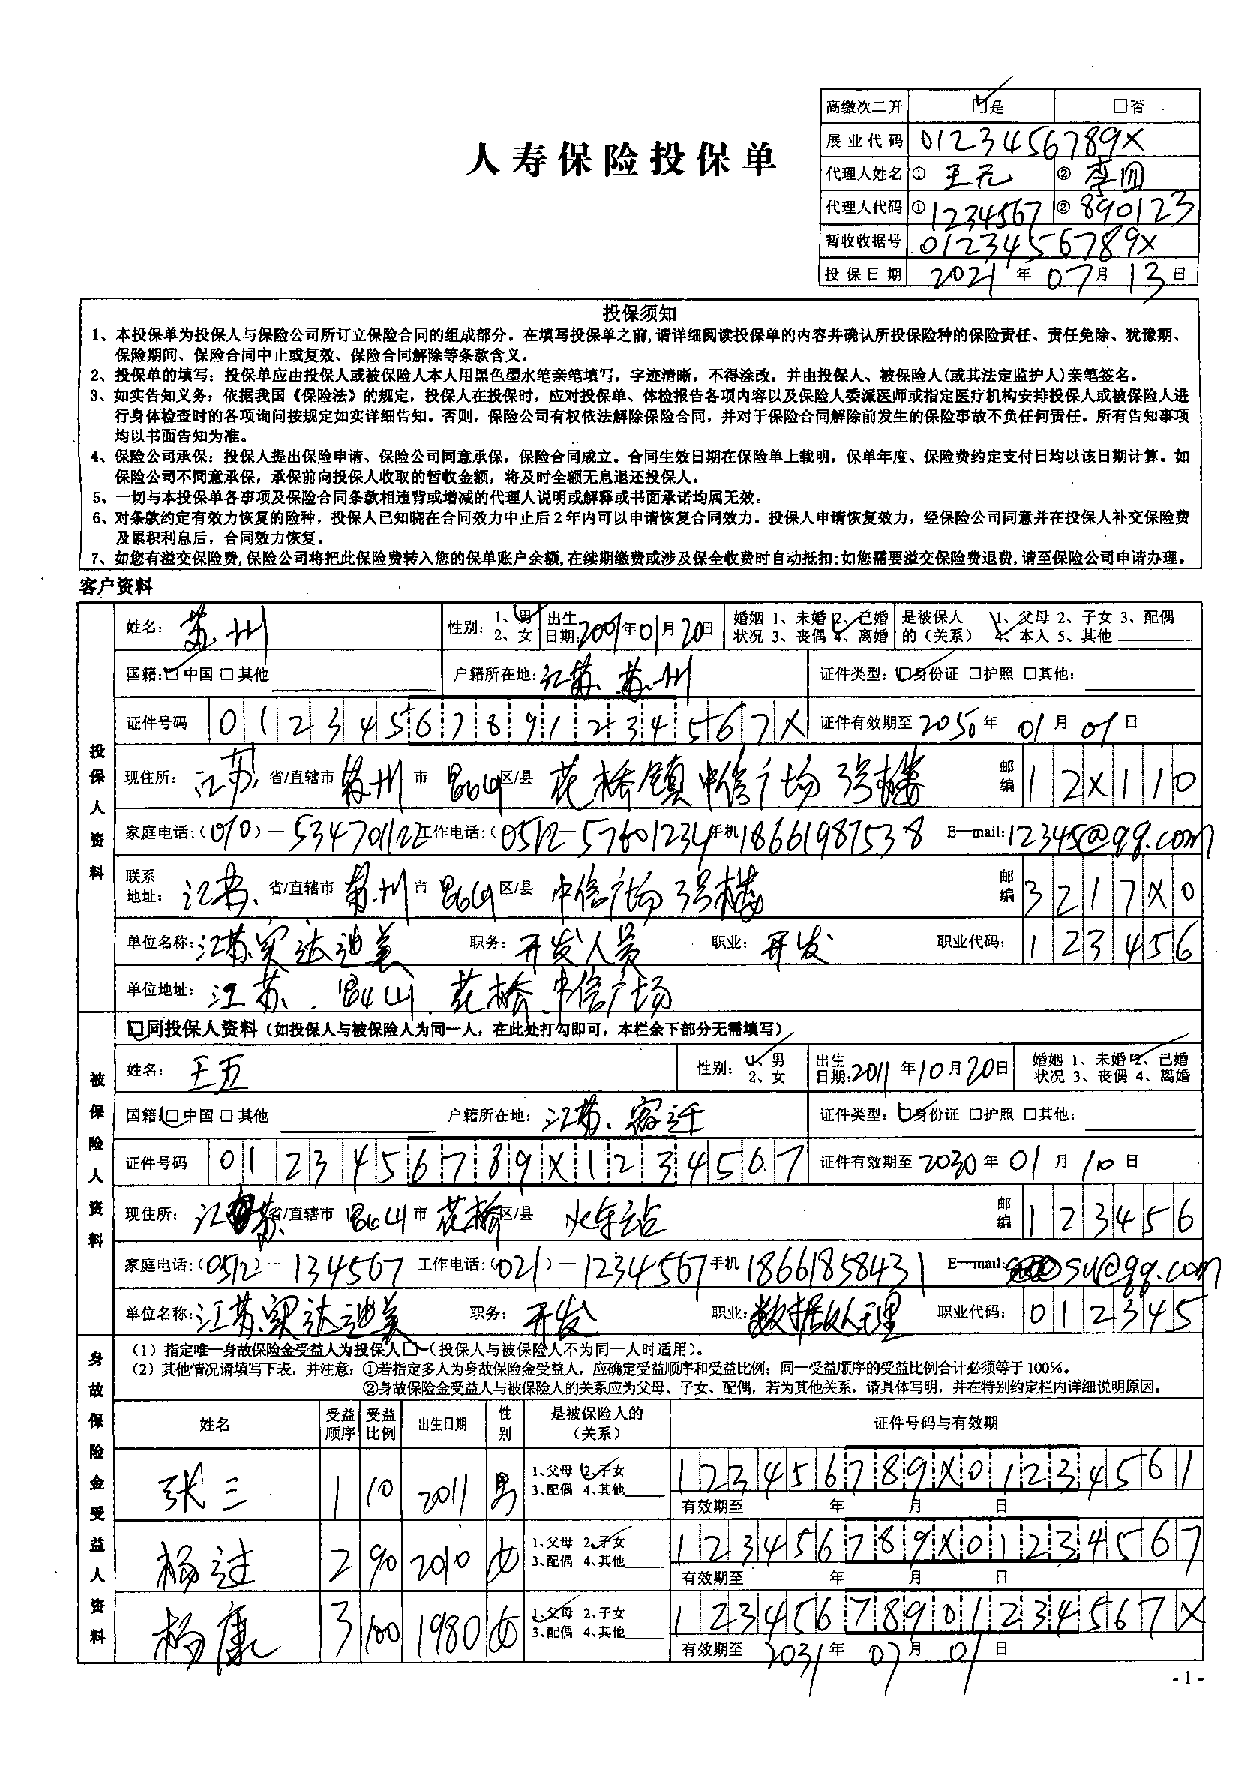 高缴次二开 ☑是 □否
人寿保险投保单
展业代码 0123456789X
代理人姓名 ① 王元 ② 李四
代理人代码 ① 1234567 ② 890123
暂收收据号 0123456789X
投保日期 2021 年 07 月 13 日
投保须知
1、本投保单为投保人与保险公司所订立保险合同的组成部分。在填写投保单之前,请详细阅读投保单的内容并确认所投保险种的保险责任、责任免除、犹豫期、
保险期间、保险合同中止或复效、保险合同解除等条款含义。
2、投保单的填写：投保单应由投保人或被保险人本人用黑色墨水笔亲笔填写，字迹清晰，不得涂改，并由投保人、被保险人(或其法定监护人)亲笔签名。
3、如实告知义务：依据我国《保险法》的规定，投保人在投保时，应对投保单、体检报告各项内容以及保险人委派医师或指定医疗机构安排投保人或被保险人进
行身体检查时的各项询问按规定如实详细告知。否则，保险公司有权依法解除保险合同，并对于保险合同解除前发生的保险事故不负任何责任。所有告知事项
均以书面告知为准。
4、保险公司承保：投保人提出保险申请、保险公司同意承保，保险合同成立。合同生效日期在保险单上载明，保单年度、保险费约定支付日均以该日期计算。如
保险公司不同意承保，承保前向投保人收取的暂收金额，将及时全额无息退还投保人。
5、一切与本投保单各事项及保险合同条款相违背或增减的代理人说明或解释或书面承诺均属无效。
6、对条款约定有效力恢复的险种，投保人已知晓在合同效力中止后2年内可以申请恢复合同效力。投保人申请恢复效力，经保险公司同意并在投保人补交保险费
及累积利息后，合同效力恢复。
7、如您有溢交保险费,保险公司将把此保险费转入您的保单账户余额,在续期缴费或涉及保全收费时自动抵扣;如您需要溢交保险费退费,请至保险公司申请办理。
客户资料
投保人资料
姓名: 苏州 性别: 1、男 2、女 出生日期: 2009年01月20日 婚姻状况 1、未婚 2、已婚 3、丧偶 4、离婚 是被保人的（关系） 1、父母 2、子女 3、配偶 4、本人 5、其他
国籍:☑中国 □其他 户籍所在地: 江苏、苏州 证件类型: ☑身份证 □护照 □其他:
证件号码 01234567891234567X 证件有效期至 2050 年 01 月 01 日
现住所: 江苏 省/直辖市 苏州 市 昆山 区/县 花桥镇中信广场3号楼 邮编 12X110
家庭电话:(010)-53470112 工作电话:(0512-57601234 手机 18661987538 E—mail: 12345@qq.com
联系地址: 江苏 省/直辖市 苏州 市 昆山 区/县 中信广场3号楼 邮编 3217X0
单位名称: 江苏实达迪美 职务: 开发人员 职业: 开发 职业代码: 123456
单位地址: 江苏、昆山 花桥 中信广场
被保险人资料
□同投保人资料（如投保人与被保险人为同一人，在此处打勾即可，本栏余下部分无需填写）
姓名: 王五 性别: 1、男 2、女 出生日期: 2011 年 10 月 20 日 婚姻状况 1、未婚 2、已婚 3、丧偶 4、离婚
国籍 ☑中国 □其他 户籍所在地: 江苏、宿迁 证件类型: ☑身份证 □护照 □其他:
证件号码 0123456789X1234567 证件有效期至 2030 年 01 月 10 日
现住所: 江苏 省/直辖市 昆山 市 花桥 区/县 火车站 邮编 123456
家庭电话:(0512--134567 工作电话:(021)-1234567 手机 18661858431 E—mail: su@qq.com
单位名称: 江苏实达迪美 职务: 开发 职业: 数据处理 职业代码: 012345
身故保险金受益人资料
（1）指定唯一身故保险金受益人为投保人□（投保人与被保险人不为同一人时适用）。
（2）其他情况请填写下表，并注意：①若指定多人为身故保险金受益人，应确定受益顺序和受益比例；同一受益顺序的受益比例合计必须等于100%。
②身故保险金受益人与被保险人的关系应为父母、子女、配偶，若为其他关系，请具体写明，并在特别约定栏内详细说明原因。
姓名 受益顺序 受益比例 出生日期 性别 是被保险人的（关系） 证件号码与有效期
张三 1 10 2011 男 1、父母 2、子女 3、配偶 4、其他 123456789X01234561
有效期至 年 月 日
杨过 2 90 2010 女 1、父母 2、子女 3、配偶 4、其他 123456789X01234567
有效期至 年 月 日
杨康 3 100 1980 女 1、父母 2、子女 3、配偶 4、其他 12345678901234567X
有效期至 2031 年 07 月 01 日
- 1 -